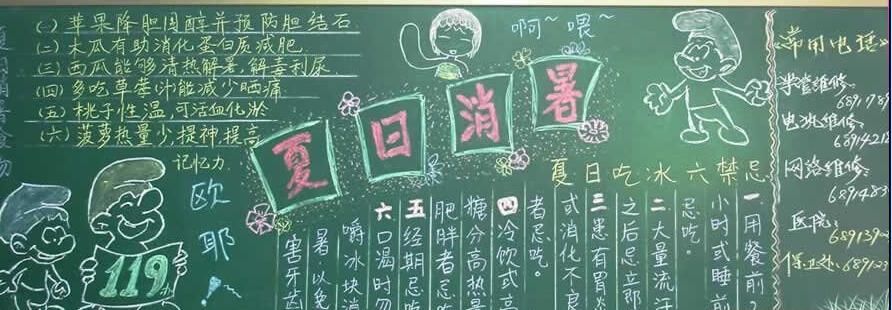 (一) 苹果降胆固醇并预防胆结石
(二) 木瓜有助消化蛋白质减肥
(三) 西瓜能够清热解暑,解毒利尿
(四) 多吃草莓汁能减少晒痛
(五) 桃子性温,可活血化淤
(六) 菠萝热量少提神提高
记忆力
欧耶!
119
啊~喂~
夏日消暑
夏日吃冰六禁忌
一用餐前
小时或睡前
忌吃。
二大量流汗
之后忌立即
三患有胃炎
或消化不良
者忌吃。
四冷饮或高
糖分高热量
肥胖者忌吃
五经期忌吃
六口渴时勿
嚼冰块消
暑以免
害牙齿
常用电话
学管维修:
电视维修:
网络维修:
医院:
保卫处: